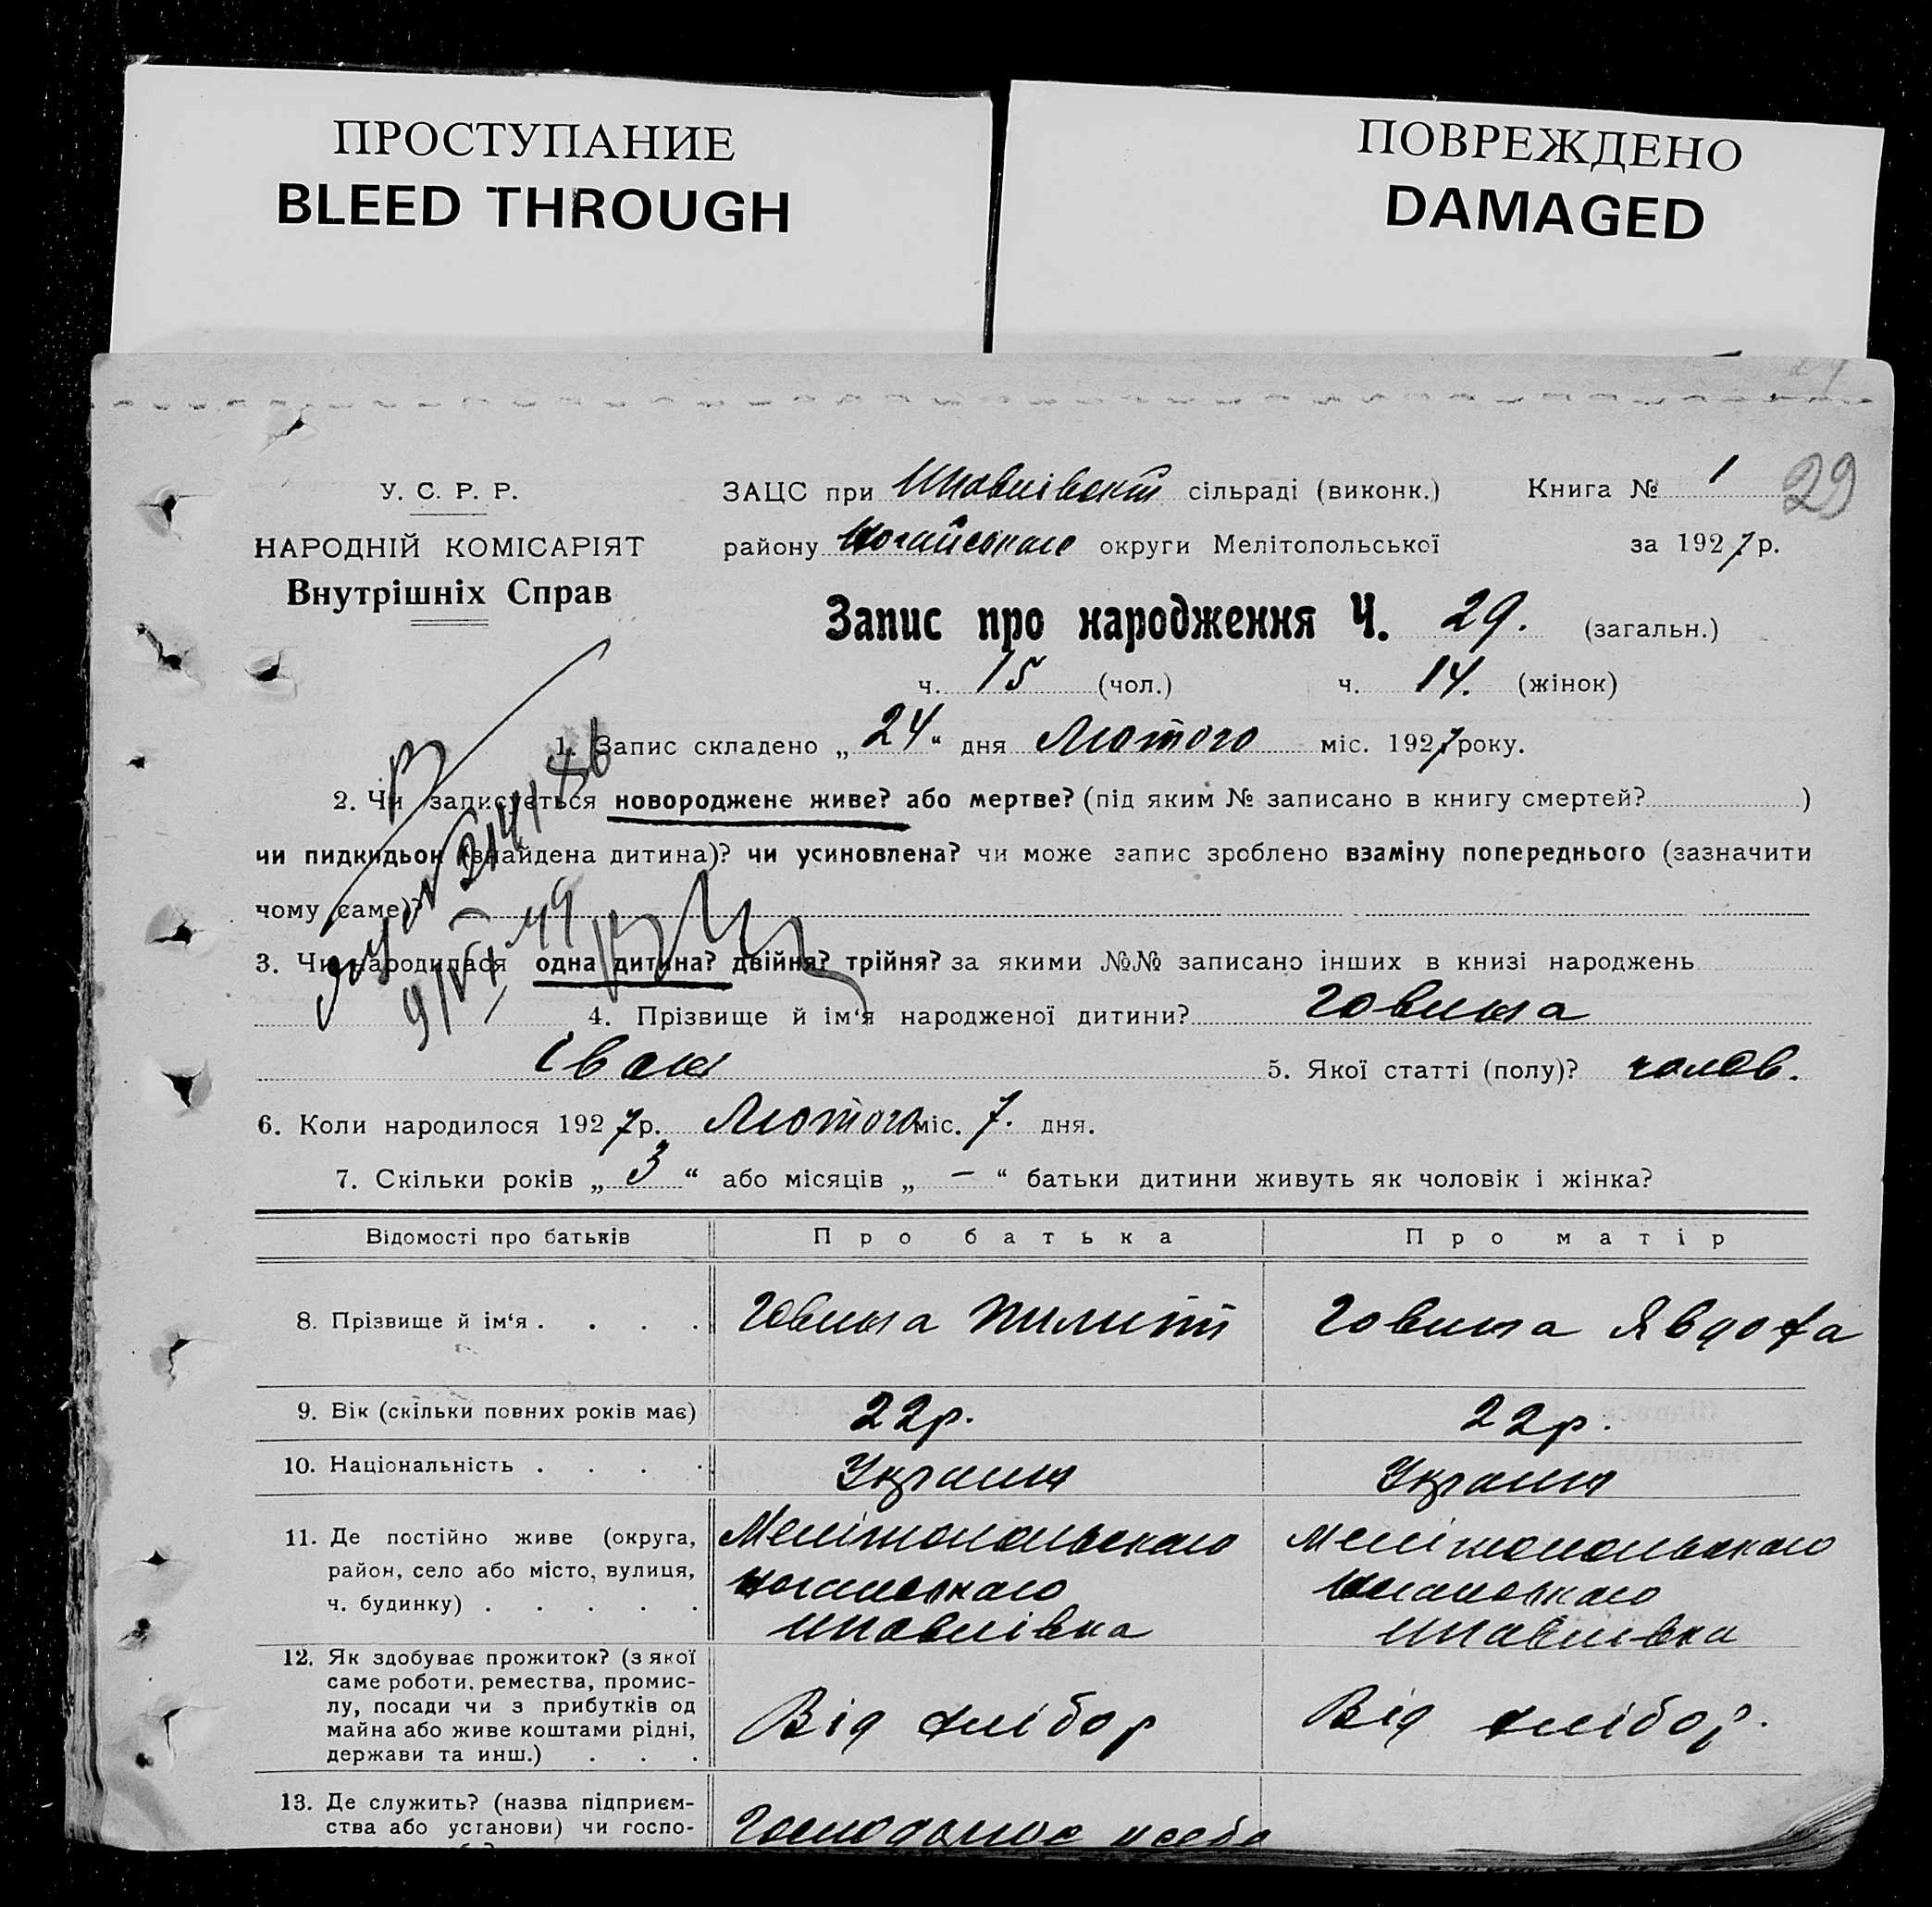 ПРОСТУПАНИЕ
BLEED THROUGH
ПОВРЕЖДЕНО
DAMAGED
У. С. Р. Р.
НАРОДНІЙ КОМІСАРІЯТ
Внутрішніх Справ
ЗАЦС при сільраді (виконк.)
Книга № 1
29
району округи Мелітопольської
за 1927 р.
Запис про народження Ч. 29. (загальн.)
ч. 15 (чол.) ч. 14. (жінок)
1. Запис складено „24“ дня Лютого міс. 1927 року.
2. Чи записується новороджене живе? або мертве? (під яким № записано в книгу смертей? )
чи пидкидьок (знайдена дитина)? чи усиновлена? чи може запис зроблено взаміну попереднього (зазначити
чому саме)?
3. Чи народилася одна дитина? двійня? трійня? за якими №№ записано інших в книзі народжень
4. Прізвище й ім‘я народженої дитини? Говина
Іван 5. Якої статті (полу)? чолов.
6. Коли народилося 1927 р. Лютого міс. 7. дня.
7. Скільки років „3“ або місяців „–“ батьки дитини живуть як чоловік і жінка?
Відомості про батьків Про батька Про матір
8. Прізвище й ім‘я . . . . Говина Пилип Говина Явдоха
9. Вік (скільки повних років має) 22р. 22р.
10. Національність . . . . Україн Україн
11. Де постійно живе (округа,
район, село або місто, вулиця,
ч. будинку) . . . . .
Мелітопольського Мелітопольського
12. Як здобуває прожиток? (з якої
саме роботи, ремества, промис-
лу, посади чи з прибутків од
майна або живе коштами рідні,
держави та инш.) . . .
Від хлібор Від хлібор.
13. Де служить? (назва підприєм-
ства або установи) чи госпо-